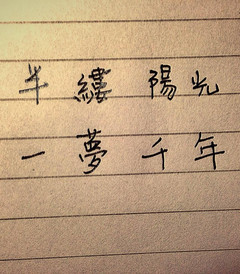 半縷陽光
一夢千年